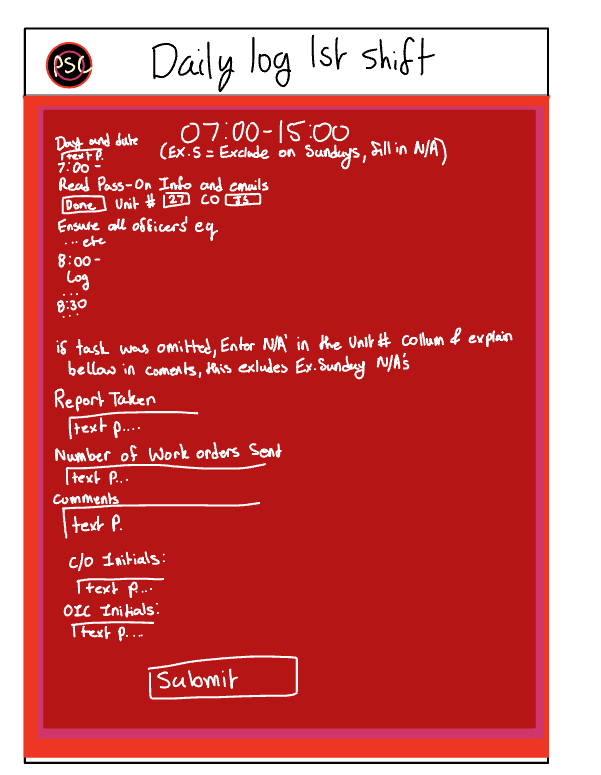 PSC
Daily log 1st shift
07:00-15:00
Day and date
(EX.S = Exclude on Sundays, fill in N/A)
text P.
7:00-
Read Pass-On Info and emails
Done Unit # 27 CO IS
Ensure all officers' eq
...etc
8:00-
Log
...
8:30
...
if task was omitted, Enter N/A' in the Unit# collum & explain
bellow in coments, this exludes Ex.Sunday N/A's
Report Taken
text p....
Number of Work orders Sent
text p...
comments
text P.
C/O Initials:
text p...
OIC Initials:
text p....
Submit